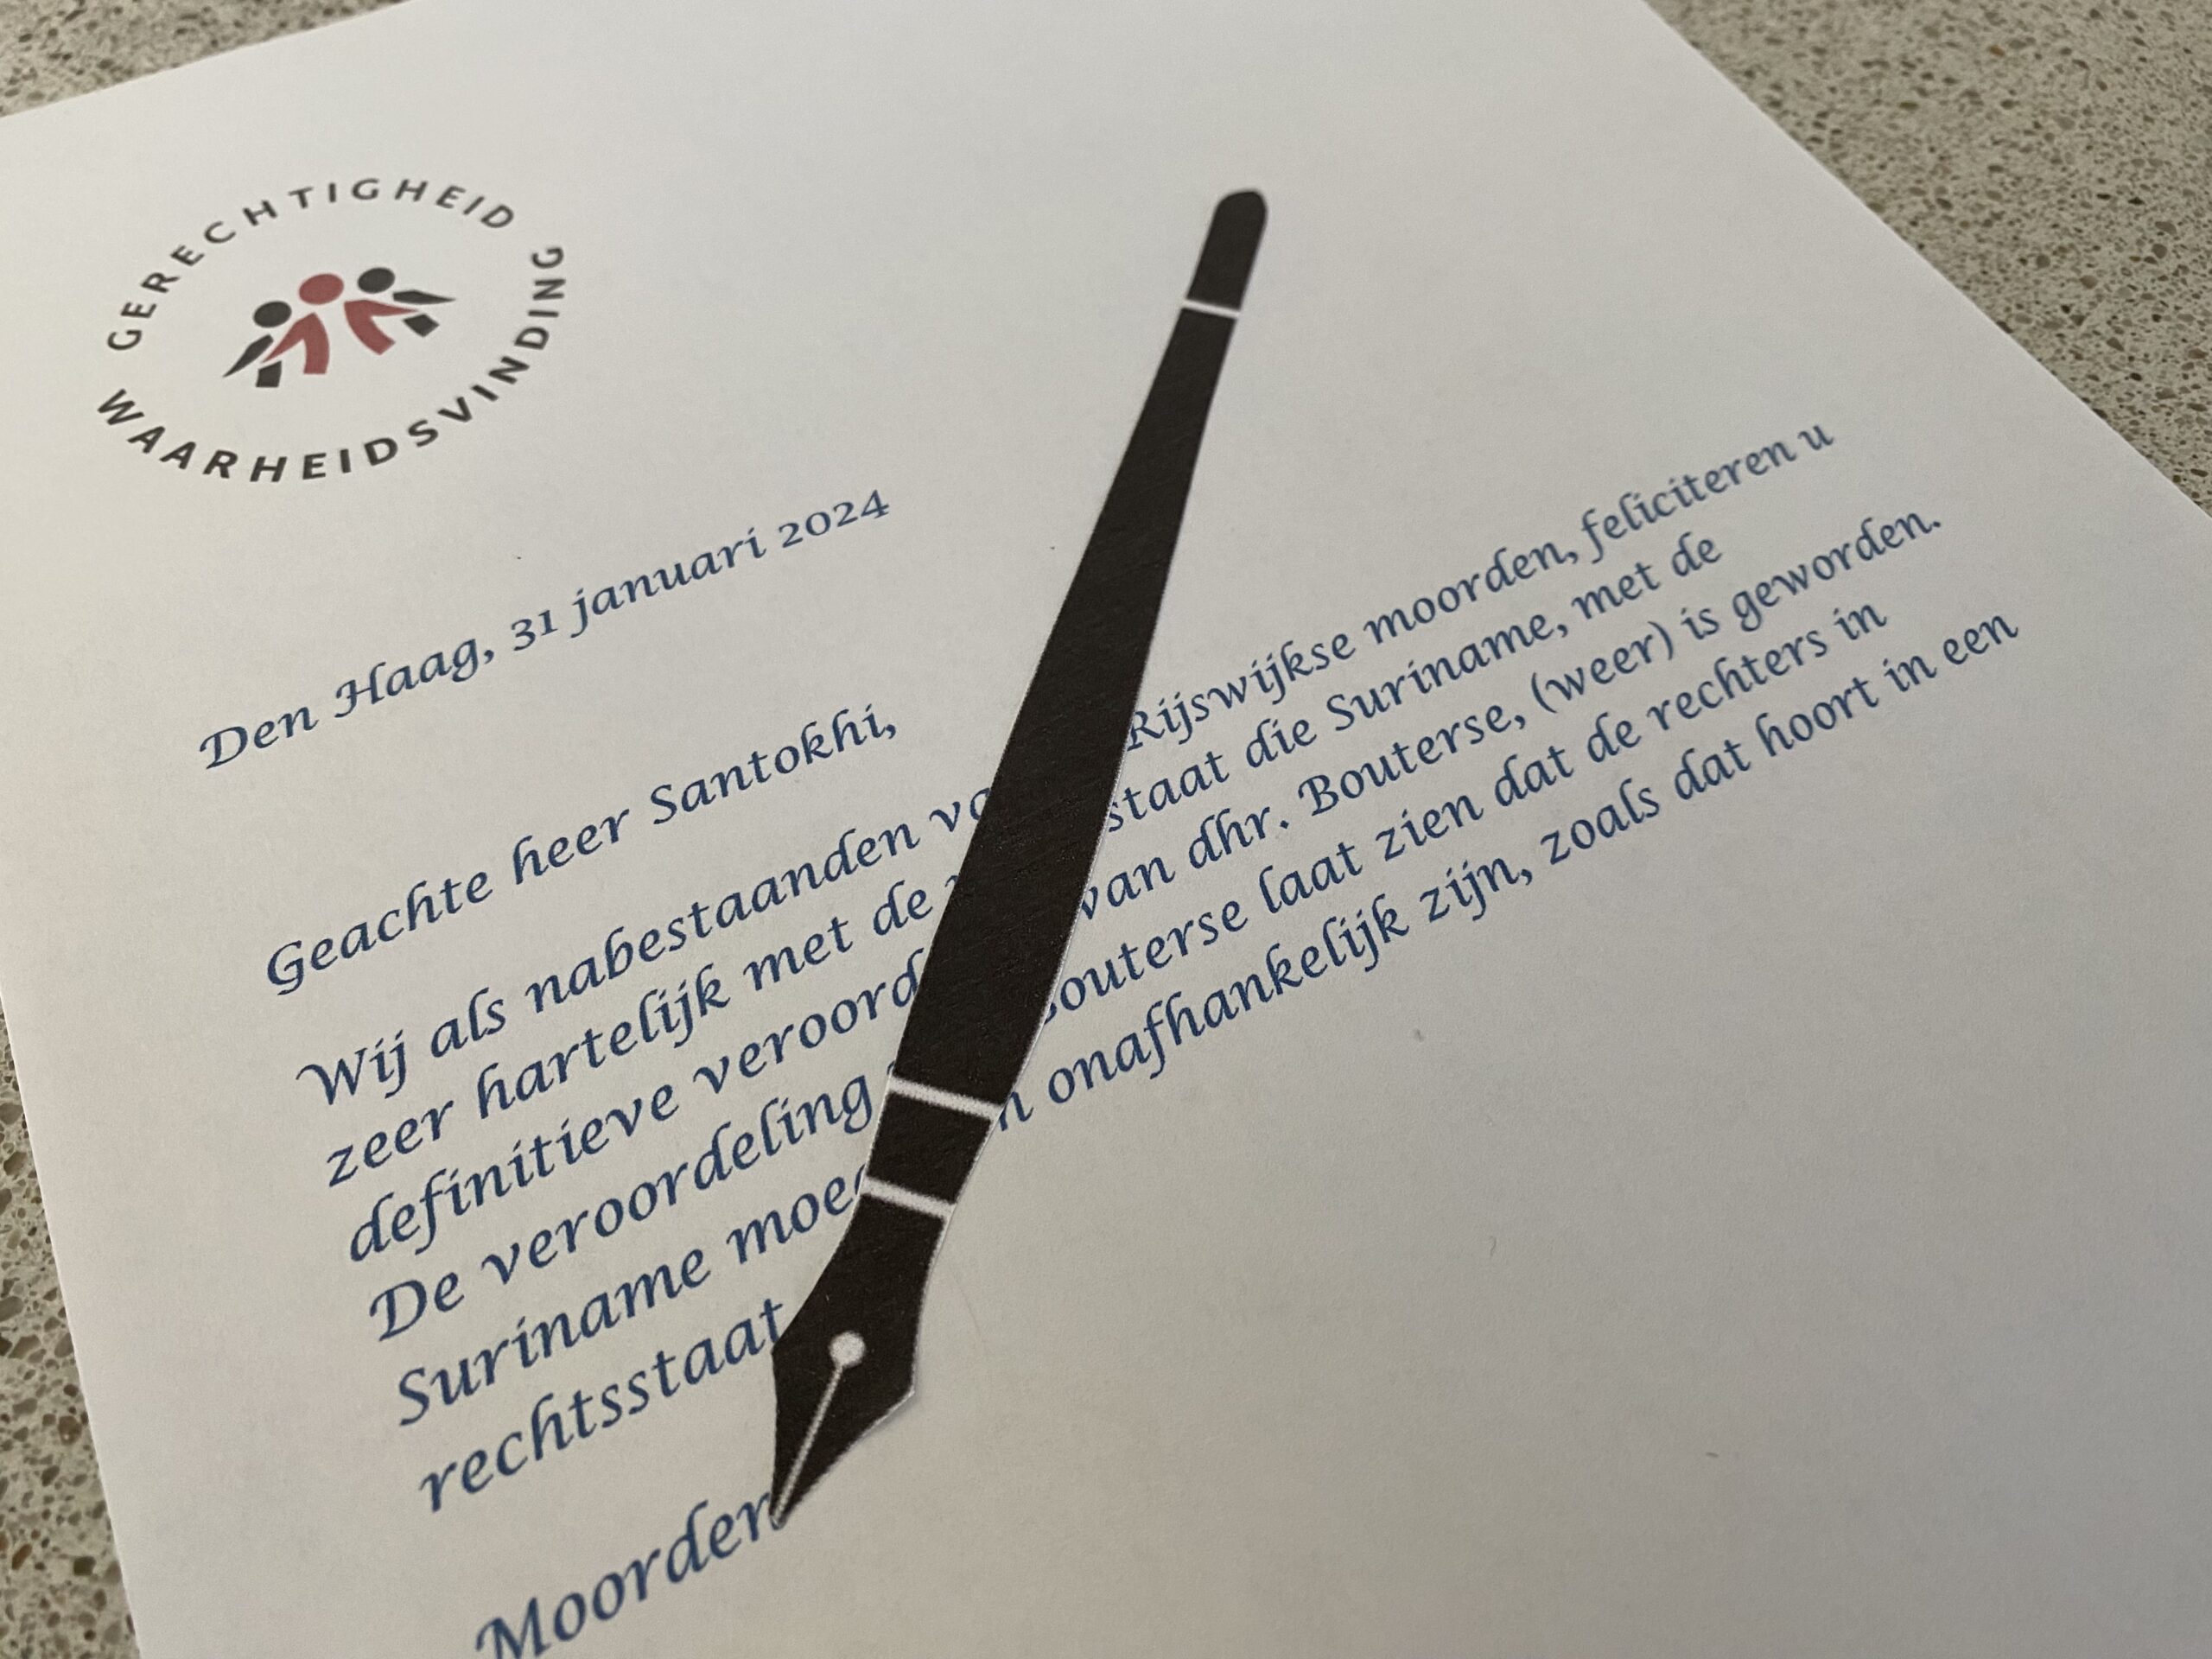 GERECHTIGHEID
WAARHEIDSVINDING
Den Haag, 31 januari 2024
Geachte heer Santokhi,
Wij als nabestaanden Rijswijkse moorden, feliciteren u
zeer hartelijk met de staat die Suriname, met de
definitieve van dhr. Bouterse, (weer) is geworden.
De veroordeling laat zien dat de rechters in
Suriname onafhankelijk zijn, zoals dat hoort in een
rechtsstaat
Moorden